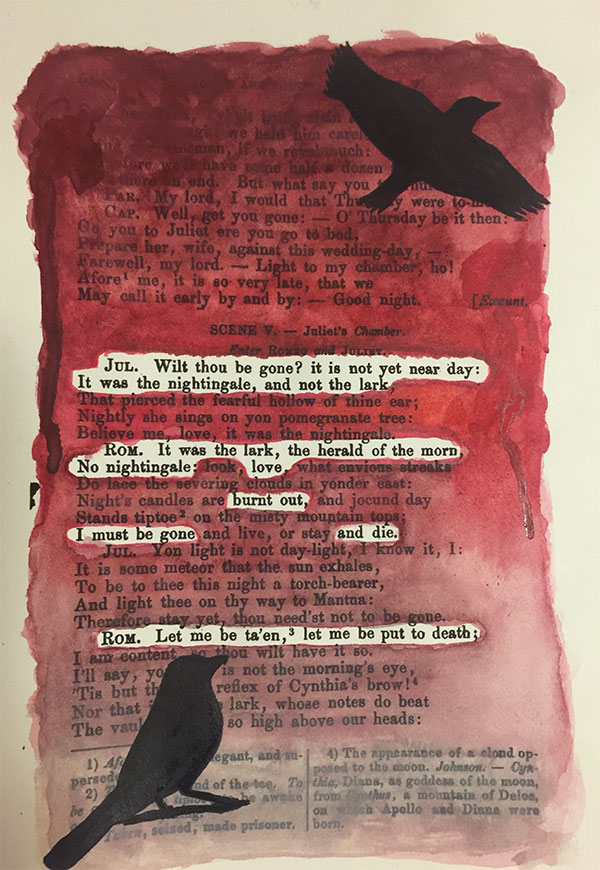 we held him
if we
have some half a dozen
there an end. But what say you
PAR. My lord, I would that were
CAP. Well, get you gone: — O' Thursday be it then:
Go you to Juliet ere you go to bed,
Prepare her, wife, against this wedding-day, —
Farewell, my lord. — Light to my chamber, ho!
Afore¹ me, it is so very late, that we
May call it early by and by: — Good night. [Exeunt.
SCENE V. — Juliet's Chamber.
Enter ROMEO and JULIET.
JUL. Wilt thou be gone? it is not yet near day:
It was the nightingale, and not the lark,
That pierced the fearful hollow of thine ear;
Nightly she sings on yon pomegranate tree:
Believe me, love, it was the nightingale.
ROM. It was the lark, the herald of the morn,
No nightingale: look, love, what envious streaks
Do lace the severing clouds in yonder east:
Night's candles are burnt out, and jocund day
Stands tiptoe² on the misty mountain tops;
I must be gone and live, or stay and die.
JUL. Yon light is not day-light, I know it, I:
It is some meteor that the sun exhales,
To be to thee this night a torch-bearer,
And light thee on thy way to Mantua:
Therefore stay yet, thou need'st not to be gone.
ROM. Let me be ta'en,³ let me be put to death;
I am content, so thou wilt have it so.
I'll say, is not the morning's eye,
'Tis but reflex of Cynthia's brow!⁴
Nor that lark, whose notes do beat
The so high above our heads:
1)
2) of the toe. To
be awake
Taken, seized, made prisoner.
4) The appearance of a cloud op-
posed to the moon. Johnson. — Cyn-
thia, Diana, as goddess of the moon,
from Cynthus, a mountain of Delos,
on which Apollo and Diana were
born.